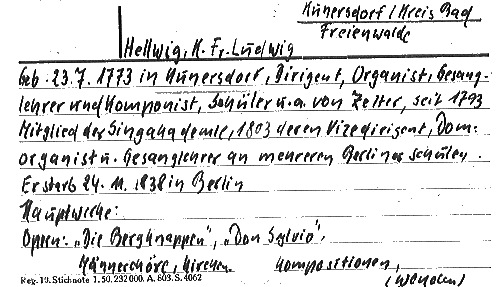 Kunersdorf / Kreis Bad
Freienwalde
Hellwig, K. Fr. Ludwig
Geb. 23.7. 1773 in Kunersdorf, Dirigent, Organist, Gesang-
lehrer und Komponist, Schüler u.a. von Zelter, seit 1793
Mitglied der Singakademie, 1803 deren Vizedirigent, Dom-
organist u. Gesanglehrer an mehreren Berliner Schulen.
Er starb 24. 11. 1838 in Berlin
Hauptwerke:
Opern: „Die Bergknappen", „Don Sylvio",
Männerchöre, Kirchen. Kompositionen,
Reg. 19. Stichnote 1. 50. 232000. A. 803. S. 4062